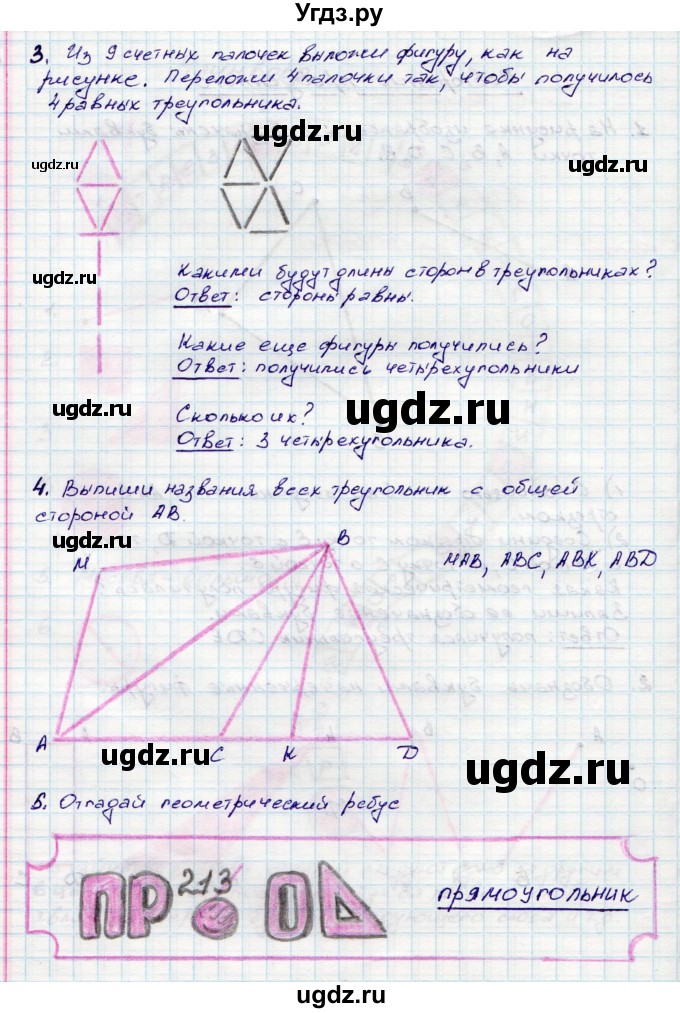 Угдз.ру
3. Из 9 счетных палочек выложи фигуру, как на
рисунке. Переложи 4 палочки так, чтобы получилось
4 равных треугольника.
ugdz.ru
ugdz.ru
ugdz.ru
ugdz.ru
Какими будут длины сторон в треугольниках?
Ответ: стороны равны.
Какие еще фигуры получились?
Ответ: получились четырехугольники
ugdz.ru
ugdz.ru
Сколько их?
Ответ: 3 четырехугольника.
4. Выпиши названия всех треугольник с общей
стороной АВ.
ugdz.ru
М
В
МАВ, АВС, АВК, АВD
А
С
К
D
ugdz.ru
ugdz.ru
5. Отгадай геометрический ребус
ПР
213
О
ПРЯМОУГОЛЬНИК
ugdz.ru
ugdz.ru